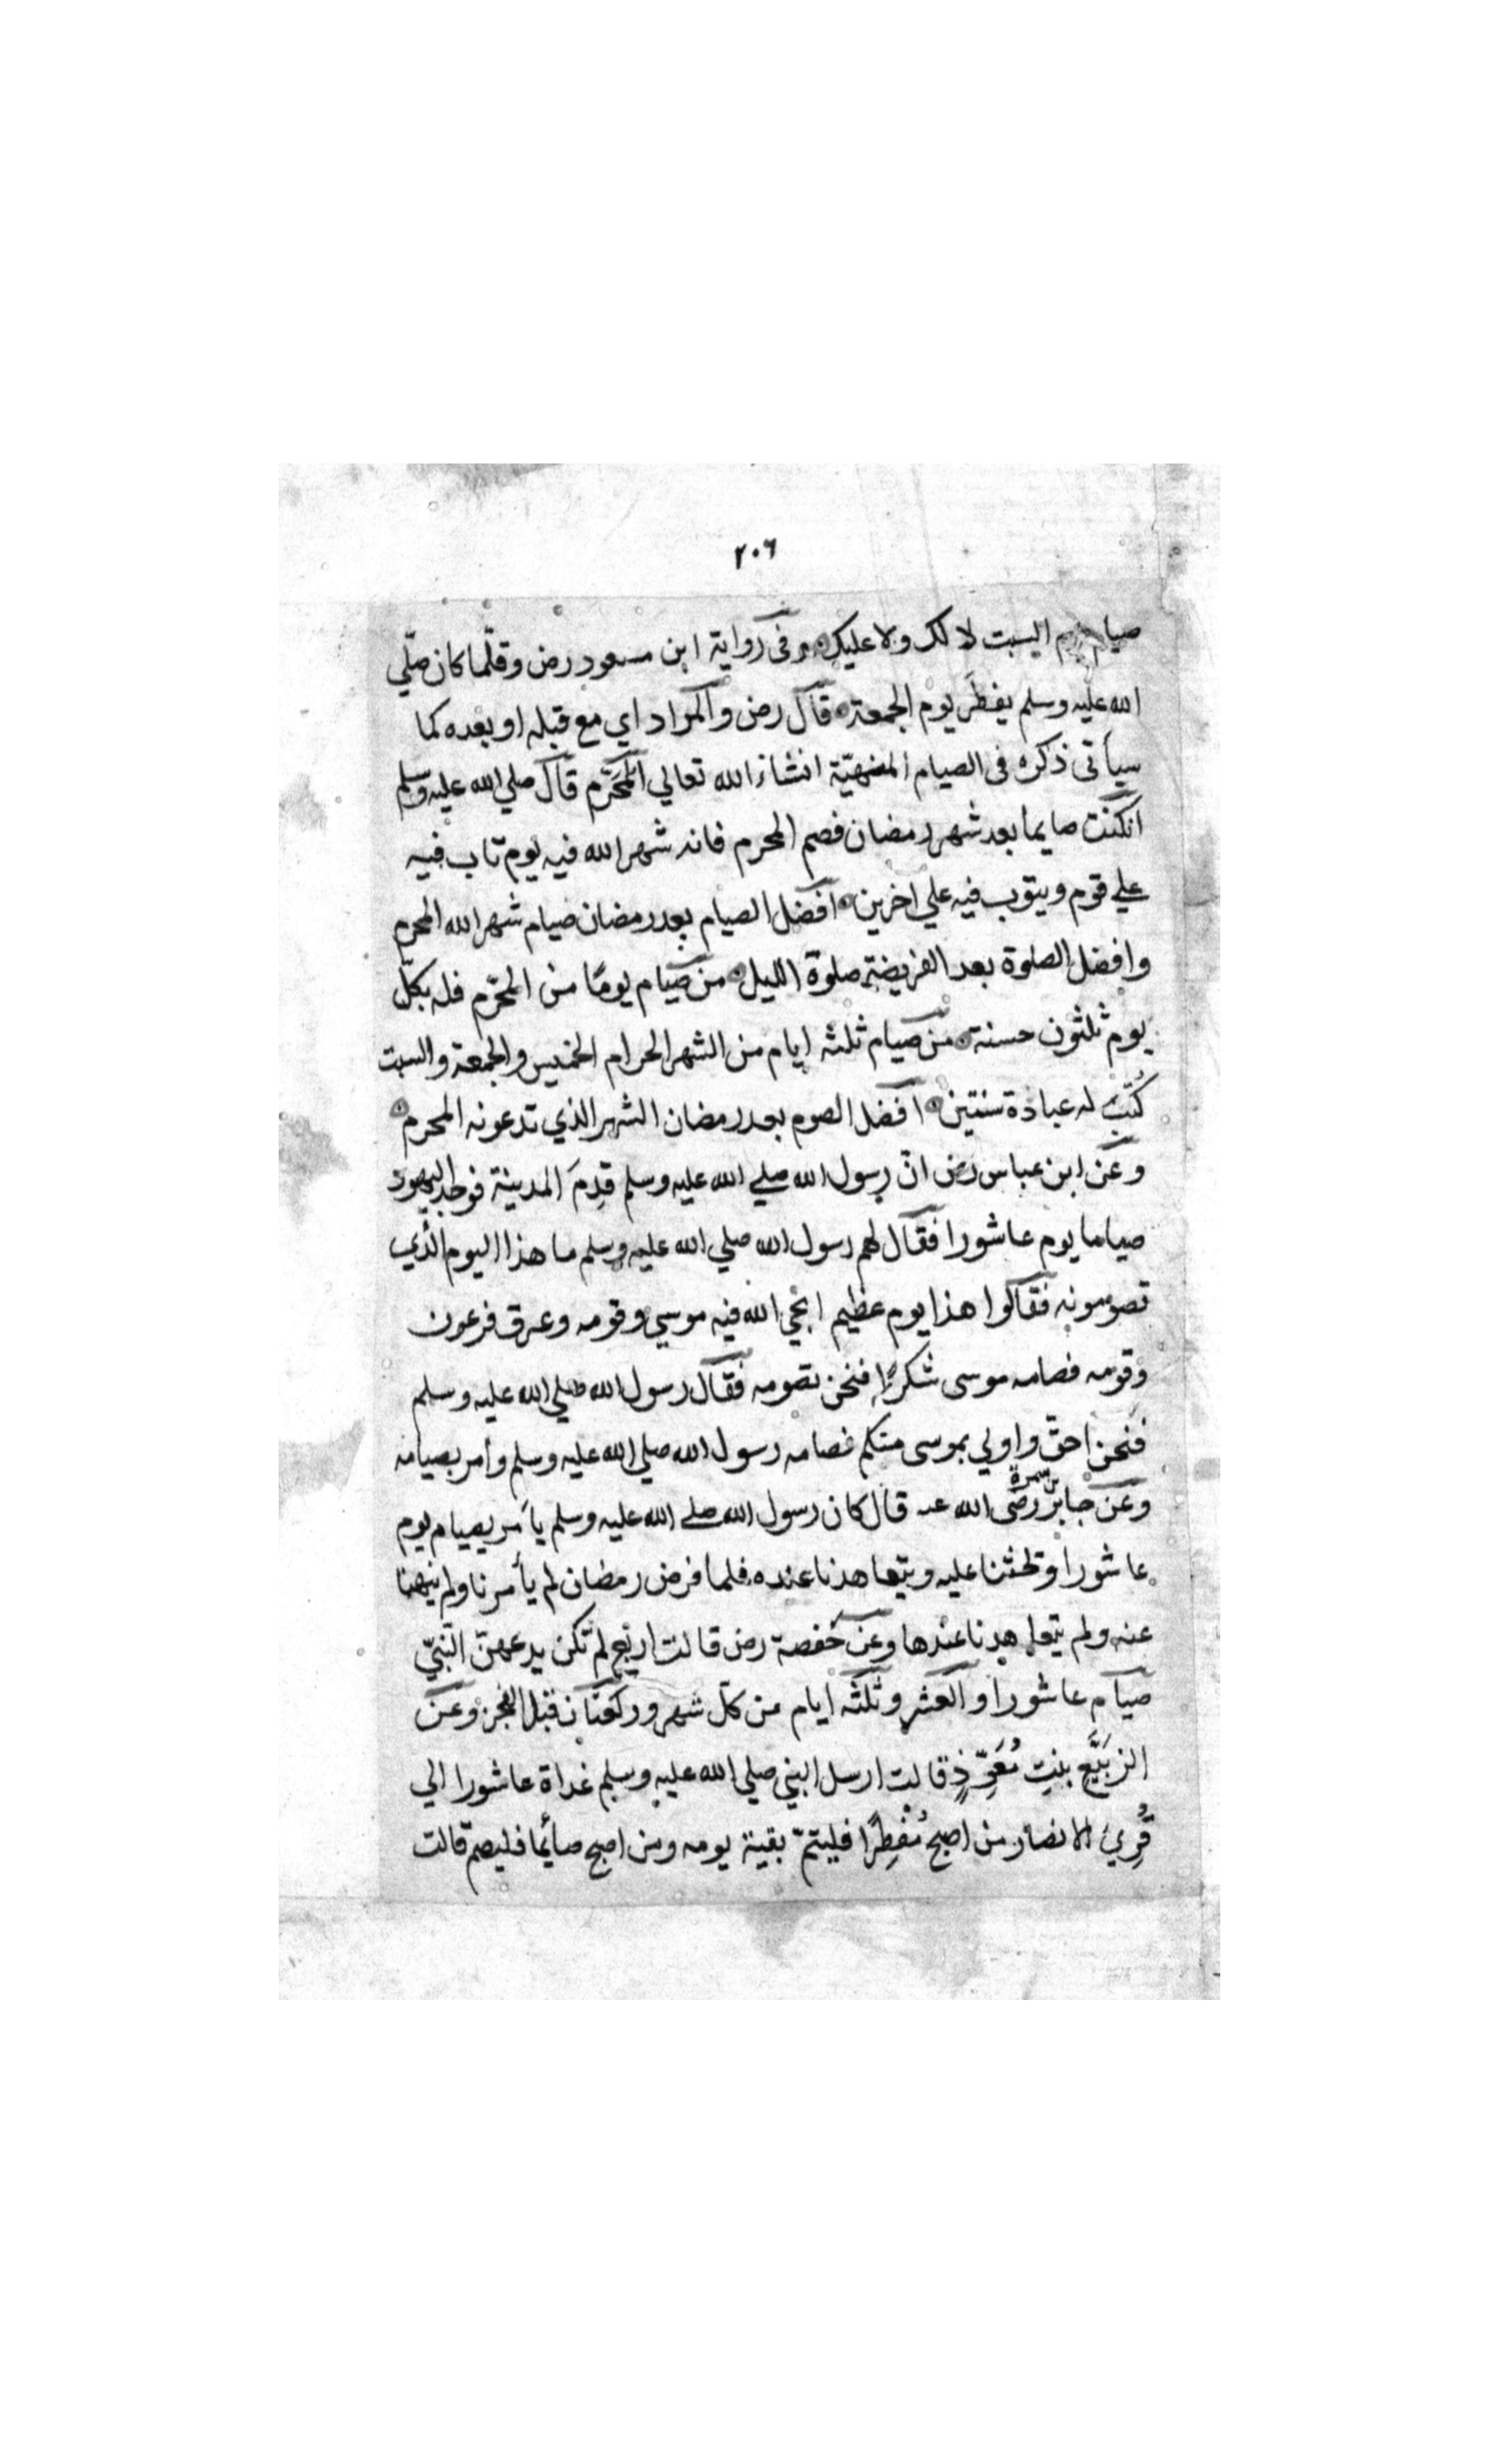 ٢٠٦
صيام السبت لا لك ولا عليك وفى رواية ابن مسعود رض وقلّما كان صلّي
الله عليه وسلم يفطر يوم الجمعة قال رض والمراد اي مع قبله او بعده كما
سيأتى ذكره فى الصيام المنهيّة انشاء الله تعالي المحرّم قال صلي الله عليه وسلم
انكنت صايما بعد شهر رمضان فصم المحرم فانه شهر الله فيه يوم تاب فيه
علي قوم ويتوب فيه علي اخرين افضل الصيام بعد رمضان صيام شهر الله المحرم
وافضل الصلوة بعد الفريضة صلوة الليل من صيام يومًا من المحرّم فله بكلّ
يوم ثلثون حسنة من صيام ثلثه ايام من الشهر الحرام الخميس والجمعة والسبت
كُتب له عبادة سنتين افضل الصوم بعد رمضان الشهر الذي تدعونه المحرم
وعن ابن عباس رض انّ رسول الله صلي الله عليه وسلم قدِمَ المدينة فوجد اليهود
صياما يوم عاشورا فقال لهم رسول الله صلي الله عليه وسلم ما هذا اليوم الّذي
تصومونه فقالوا هذا يوم عظيم انجي الله فيه موسي وقومه وعرق فرعون
وقومه فصامه موسى شكرًا فنحن نصومه فقال رسول الله صلي الله عليه وسلم
فنحن احقّ واولي بموسى منكم فصامه رسول الله صلي الله عليه وسلم وأمر بصيامه
وعن جابر بن سمرة رضى الله عنه قال كان رسول الله صلي الله عليه وسلم يأمر بصيام يوم
عاشورا وتحثنا عليه ويتعاهدنا عنده فلما فرض رمضان لم يأمرنا ولم ينهنا
عنه ولم يتعاهدنا عندها وعن حفصة رض قالت اربع لم تكن يدعهنّ النّبيّ
صيام عاشورا والعشر وثلثه ايام من كلّ شهر وركعتان قبل الفجر وعن
الرّبَيَّع بنتِ مُعَوِّذٍ قالت ارسل النبي صلي الله عليه وسلم غداة عاشورا الي
قُرِيِ الانصار من اصبح مُفطِرًا فليتمّ بقية يومه ومن اصبح صائما فليصم قالت